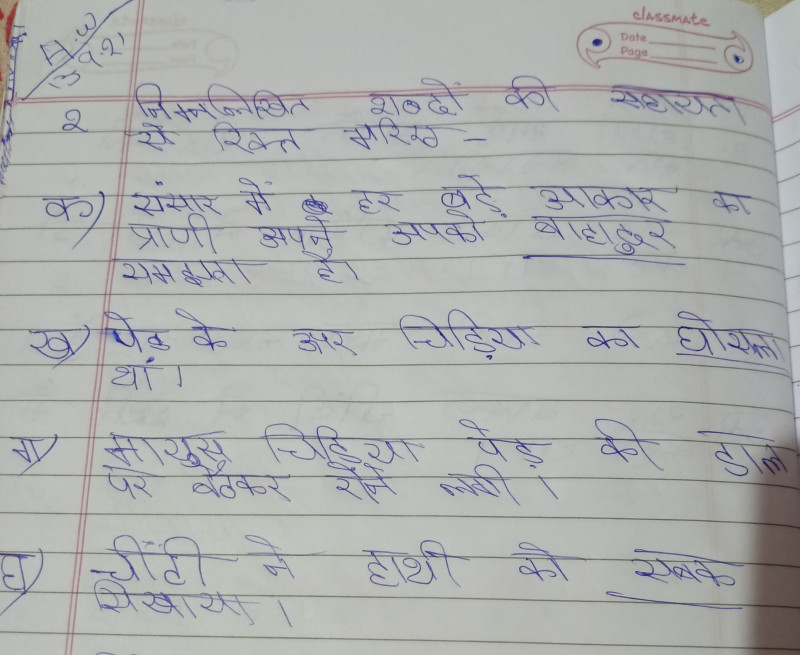 classmate
Date
Page
H.W
13.9.21
२ निम्नलिखित शब्दों की सहायता
से रिक्त भरिए -
क) संसार में हर बड़े आकार का
प्राणी अपने आपको बाहादुर
समझता है।
ख) पेड के ऊपर चिड़िया का घोसला
थां।
ग) मायुस चिड़िया पेड़ की डाल
पर बैठकर रोने लगी।
घ) चींटी ने हाथी को सबक
सिखाया।